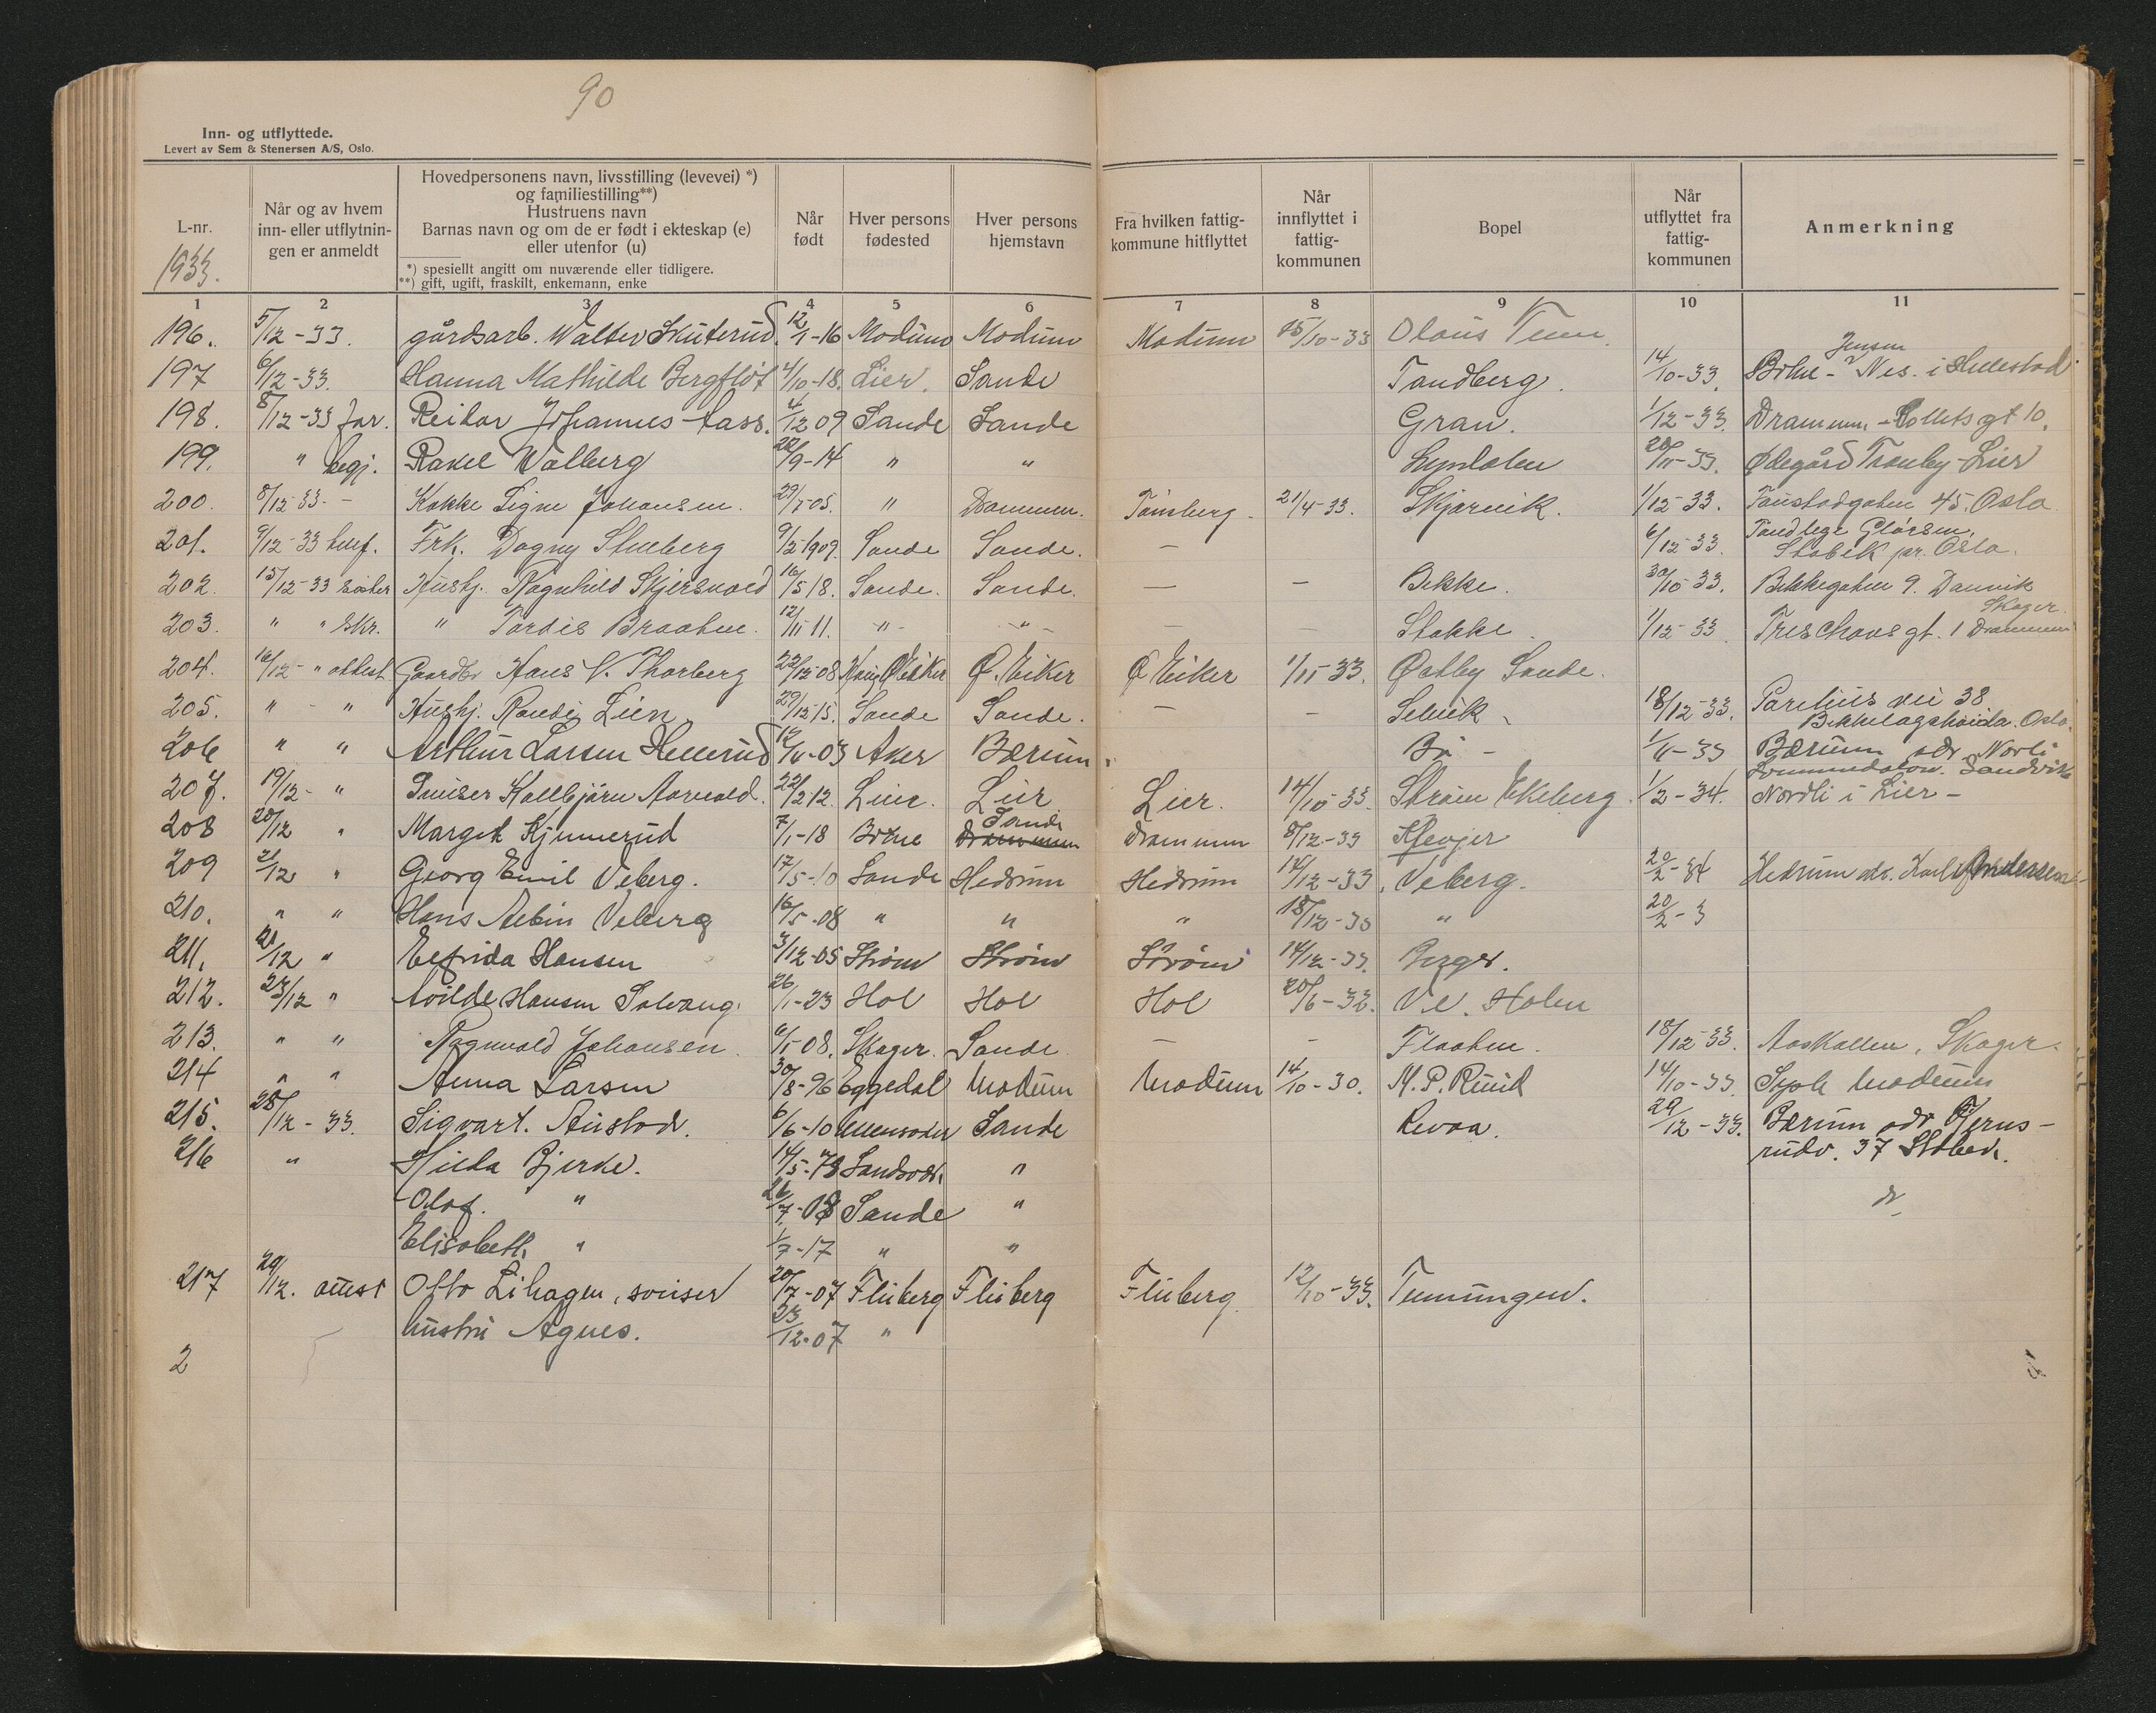 90
Inn- og utflyttede.
Levert av Sem & Stenersen A/S, Oslo.
L-nr.
1933.
Når og av hvem
inn- eller utflytnin-
gen er anmeldt
Hovedpersonens navn, livsstilling (levevei) *)
og familiestilling**)
Hustruens navn
Barnas navn og om de er født i ekteskap (e)
eller utenfor (u)
*) spesiellt angitt om nuværende eller tidligere.
**) gift, ugift, fraskilt, enkemann, enke
Når
født
Hver persons
fødested
Hver persons
hjemstavn
Fra hvilken fattig-
kommune hitflyttet
Når
innflyttet i
fattig-
kommunen
Bopel
Når
utflyttet fra
fattig-
kommunen
Anmerkning
1 2 3 4 5 6 7 8 9 10 11
196. 5/12-33. gårdsarb. Walter Skuterud. 12/1-16 Modum Modum Modum 15/10-33 Olaus Tum.
197 6/12-33. Hanna Mathilde Bergfløt 4/10-18. Lier. Sande Tandberg. 14/10-33. Jensen Nes. i Hillestad
198. 8/12-33 far. Reidar Johannes Aass. 4/12 09 Sande Sande Gran. 1/12-33. Drammen - Collets gt 10.
199. " begj. Rakel Walberg 22/9-14 " " 28/11-33. Ødegård Tranby Lier
200. 8/12-33. - Kokke Signe Johansen. 29/7-05. " Drammen. Tønsberg. 21/4-33. Skjarvik. 1/12-33. 45. Oslo
201. 9/12-33 Frk. Dagny 9/2-1909. Sande Sande. — 6/12-33. Tandlege
Stabek pr. Oslo.
202. 15/12-33 søster Hushj. Ragnhild Skjersvold 16/5 18. Sande. Sande. — — Bekke. 30/10-33. Bekkegaten 9. Danvik
Skoger.
203. " " skr. " Tordis Braaten. 12/11-11. -"- -"- — — Stokke. 1/12-33 Treschows gt. 1 Drammen
204. 16/12- " attest Gaardbr Hans V. Thorberg 22/12-08 Ø. Eiker Ø. Eiker Ø Eiker 1/11-33. Østby Sande.
205. " - " Hushj. Randi Lien 29/12-15. Sande Sande. — — Selvik 18/12-33. Parelius vei 38
Bekkelagshøida. Oslo.
206 " " Arthur Larsen Hellerud 12/4-03 Aker Bærum Bø - 1/11-33 Bærum adr. Norli
Sandvik
207. 19/12- " Sveiser Kallbjørn Aarvold. 22/2 12. Lier. Lier Lier. 14/10-33. Strøm Ekeberg. 1/2-34. Nordli i Lier -
208 20/12 " Margit Kjummerud 7/1-18 Botne Sande Drammen 8/12-33 Klevjer
209 21/12 " Georg Emil Veberg. 17/5-10 Sande Hedrum Hedrum 14/12-33. Veberg. 20/2-34 Hedrum adr. Karl Andersen
210. " " Hans Albin Veberg 16/5-08 " " " 18/12-33 " 20/2-3
211. 21/12 " Elfrida Hansen 3/12-05 Strøm Strøm Strøm 14/12-33. Berger.
212. 23/12 " Avilde Hansen Solvang. 26/1-23 Hol Hol Hol 20/6-32. V. Holen
213. " " Ragnvald Johansen. 6/5-08. Skoger. Sande — - Flaaten. 18/12-33. Aaskollen. Skoger.
214 " " Anna Larsen 30/8-96 Eggedal Modum Modum 14/10-30. M. P. Ruud 14/10-33. Modum
215. 28/12-33. Sigvart. Austad. 6/6-10 Sande Revaa. 29/12-33. Bærum adr
rudv. 37 Stabek.
216 " Hilda Bjerke. 14/5-78 "
Olaf. " 26/7-08 Sande "
Elisabeth " 1/7-17 " "
217 29/12. attest Otto Lihagen, sveiser 20/7-07 Fluberg Fluberg Fluberg. 12/10-33.
hustru Agnes. 23/12-07 "
2